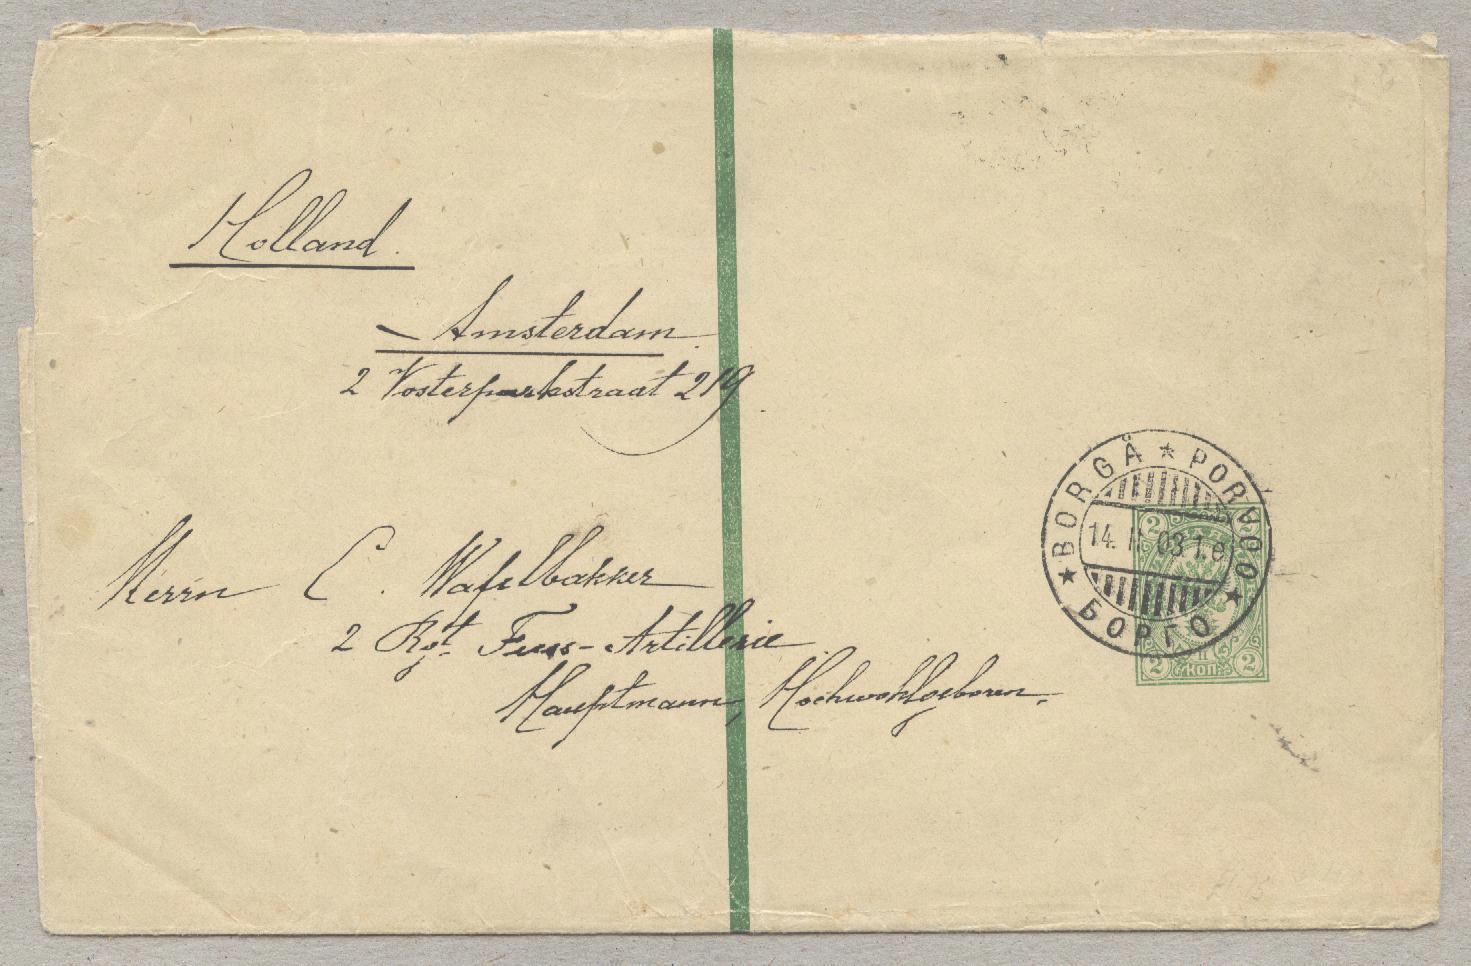 Holland.
Amsterdam.
2 Vosterparkstraat 219
Herrn C. Wafelbakker
2 Rgt. Fuss-Artillerie
Hauptmann, Hochwohlgeboren.
★ BORGÅ ★ PORVOO ★ БОРГО
14. II 03 1.e
2 2
2 КОП. 2